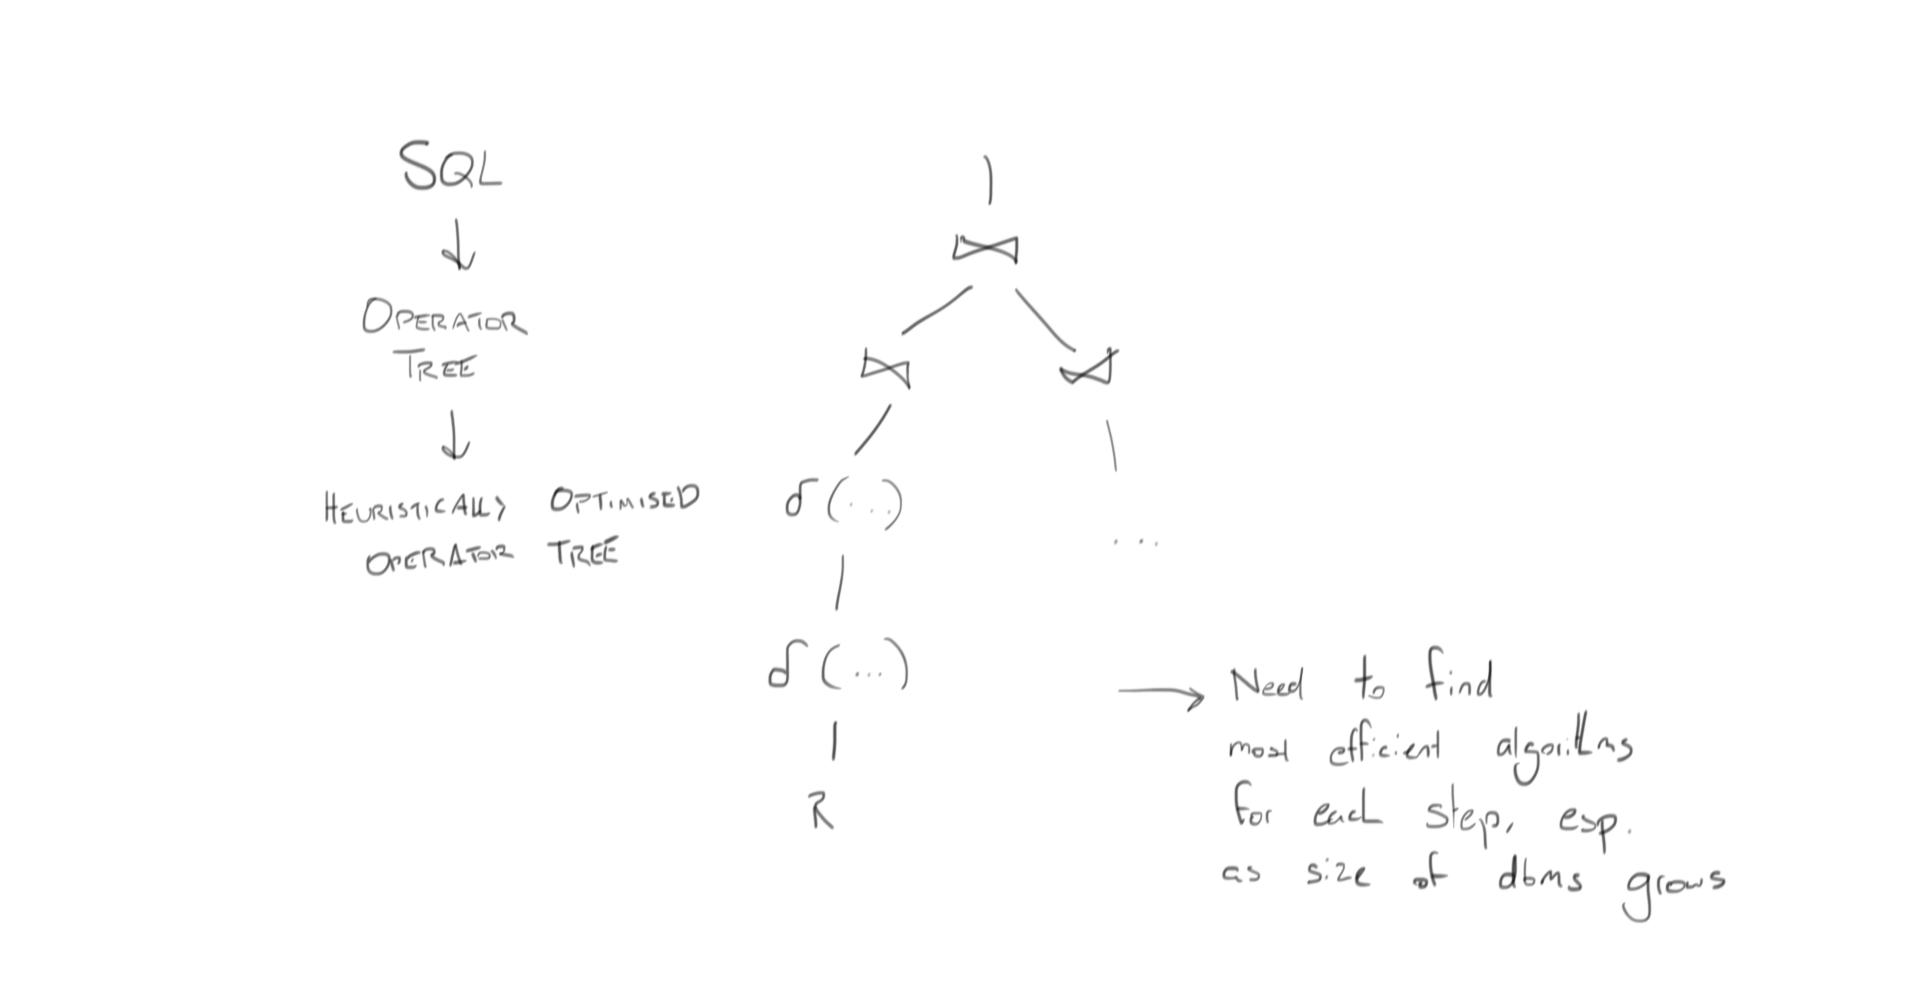 SQL
OPERATOR
TREE
HEURISTICALLY OPTIMISED
OPERATOR TREE
⋈
⋈ ⋈
σ (...)
...
σ (...)
R
→ Need to find
most efficient algorithms
for each step, esp.
as size of dbms grows